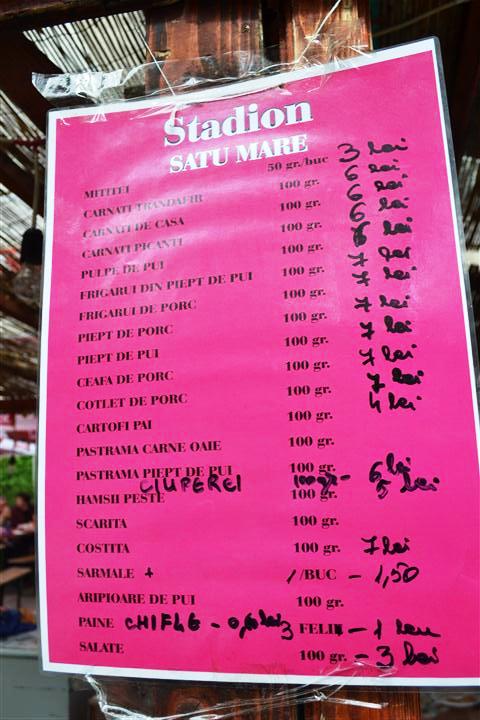 Stadion
SATU MARE
MITITEI 50 gr./buc 3 lei
CARNATI TRANDAFIR 100 gr. 6 lei
CARNATI DE CASA 100 gr. 6 lei
CARNATI PICANTI 100 gr. 6 lei
PULPE DE PUI 100 gr. lei
FRIGARUI DIN PIEPT DE PUI 100 gr. 7 lei
FRIGARUI DE PORC 100 gr. 7 lei
PIEPT DE PORC 100 gr. 7 lei
PIEPT DE PUI 100 gr. 7 lei
CEAFA DE PORC 100 gr. 7 lei
COTLET DE PORC 100 gr. 7 lei
CARTOFI PAI 100 gr. 4 lei
PASTRAMA CARNE OAIE 100 gr.
PASTRAMA PIEPT DE PUI 100 gr.
CIUPERCI 100 gr - 6 lei
HAMSII PESTE 100 gr. 5 lei
SCARITA 100 gr.
COSTITA 100 gr. 7 lei
SARMALE + /BUC - 1,50
ARIPIOARE DE PUI 100 gr.
PAINE FELIE - 1 leu
CHIFLE
SALATE 100 gr. - 3 lei